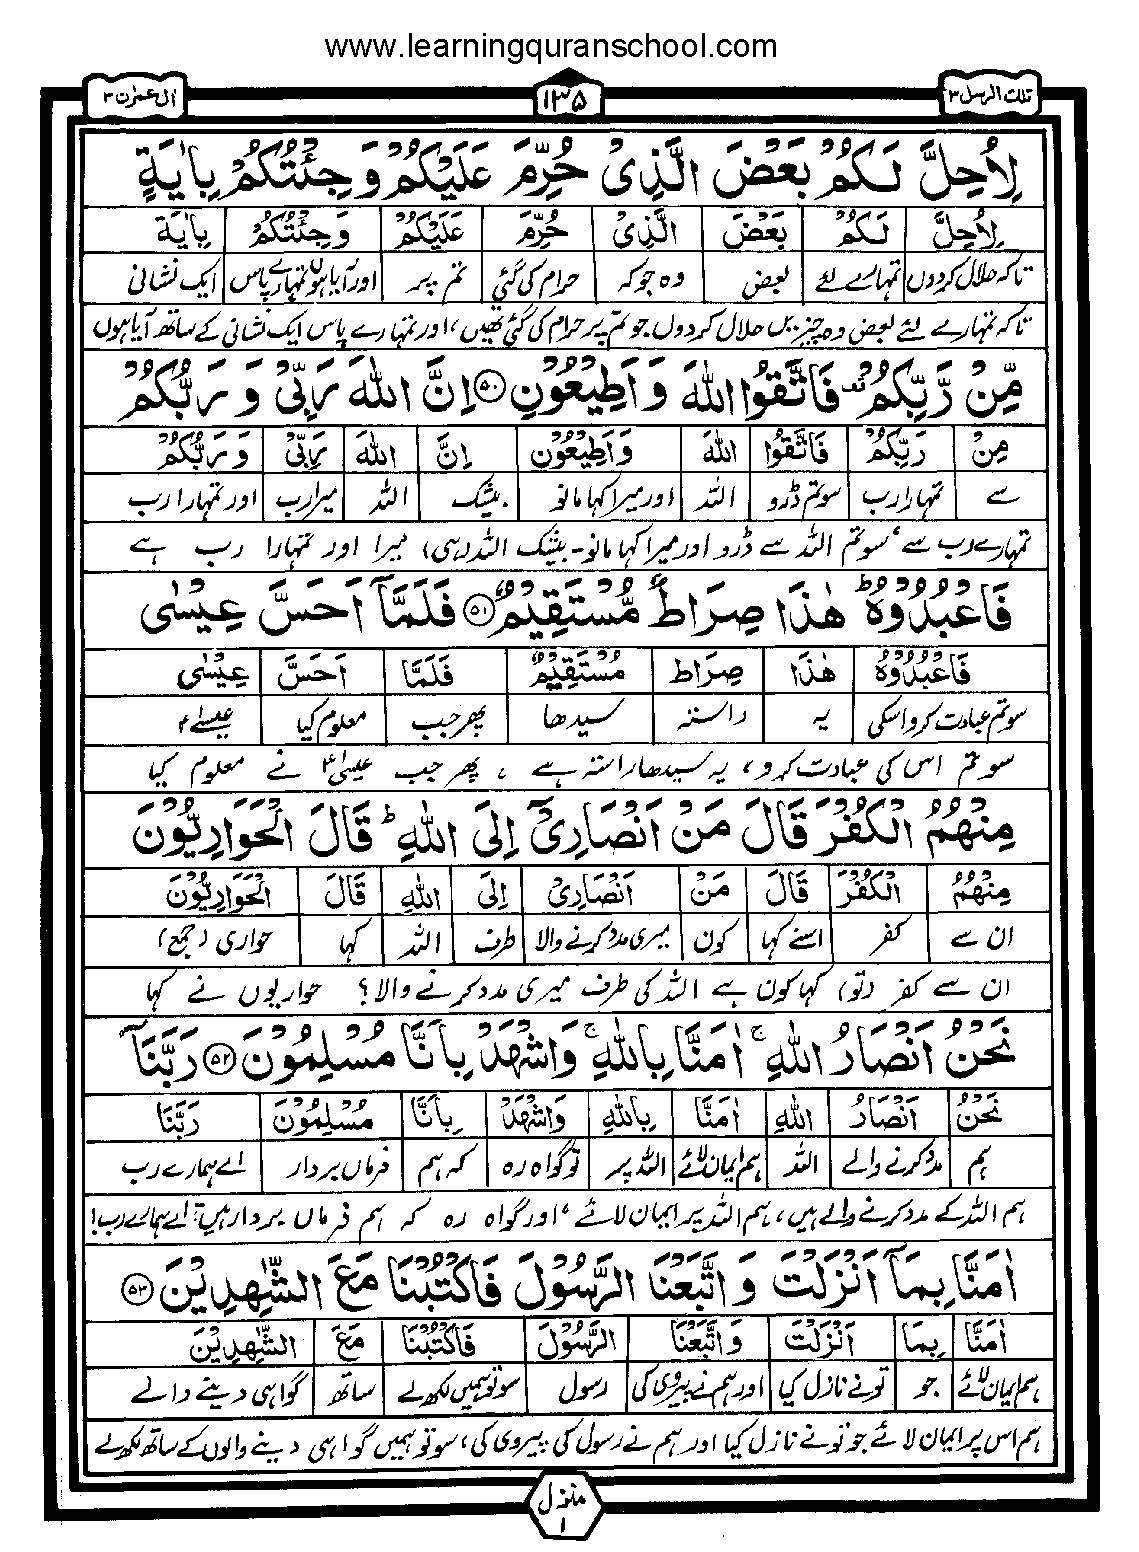 www.learningquranschool.com
تلك الرسل ۳
۱۳۵
اٰل عمرٰن ۳
لِاُحِلَّ لَكُمْ بَعْضَ الَّذِىْ حُرِّمَ عَلَيْكُمْ وَجِئْتُكُمْ بِاٰيَةٍ
لِاُحِلَّ لَكُمْ بَعْضَ الَّذِىْ حُرِّمَ عَلَيْكُمْ وَجِئْتُكُمْ بِاٰيَة
تاکہ حلال کردوں تمہارے لئے بعض وہ جوکہ حرام کی گئی تم پر اور آیا ہوں تمہارے پاس ایک نشانی
تاکہ تمہارے لئے بعض وہ چیزیں حلال کردوں جو تم پر حرام کی گئی تھیں، اور تمہارے پاس ایک نشانی کے ساتھ آیا ہوں
مِّنْ رَّبِّكُمْ فَاتَّقُوا اللهَ وَاَطِيْعُوْنِ ۵۰ اِنَّ اللهَ رَبِّىْ وَرَبُّكُمْ
مِنْ رَبِّكُمْ فَاتَّقُوْا اللهَ وَاَطِيْعُوْنِ اِنَّ اللهَ رَبِّىْ وَرَبُّكُمْ
سے تمہارا رب سو تم ڈرو اللہ اور میرا کہا مانو بیشک اللہ میرا رب اور تمہارا رب
تمہارے رب سے، سو تم اللہ سے ڈرو اور میرا کہا مانو۔ بیشک اللہ (ہی) میرا اور تمہارا رب ہے
فَاعْبُدُوْهُ ؕ هٰذَا صِرَاطٌ مُّسْتَقِيْمٌ ۵۱ فَلَمَّآ اَحَسَّ عِيْسٰى
فَاعْبُدُوْهُ هٰذَا صِرَاط مُسْتَقِيْمٌ فَلَمَّا اَحَسَّ عِيْسٰى
سو تم عبادت کرو اسکی یہ راستہ سیدھا پھر جب معلوم کیا عیسےٰؑ
سو تم اس کی عبادت کرو، یہ سیدھا راستہ ہے ، پھر جب عیسیٰؑ نے معلوم کیا
مِنْهُمُ الْكُفْرَ قَالَ مَنْ اَنْصَارِىْٓ اِلَى اللهِ ؕ قَالَ الْحَوَارِيُّوْنَ
مِنْهُمُ الْكُفْرَ قَالَ مَنْ اَنْصَارِىْ اِلَى اللهِ قَالَ الْحَوَارِيُّوْنَ
ان سے کفر اسنے کہا کون میری مدد کرنے والا طرف اللہ کہا حواری (جمع)
ان سے کفر (تو) کہا کون ہے اللہ کی طرف میری مدد کرنے والا؟ حواریوں نے کہا
نَحْنُ اَنْصَارُ اللهِ ۚ اٰمَنَّا بِاللهِ ۚ وَاشْهَدْ بِاَنَّا مُسْلِمُوْنَ ۵۲ رَبَّنَآ
نَحْنُ اَنْصَارُ اللهِ اٰمَنَّا بِاللهِ وَاشْهَدْ بِاَنَّا مُسْلِمُوْنَ رَبَّنَا
ہم مدد کرنے والے اللہ ہم ایمان لائے اللہ پر تو گواہ رہ کہ ہم فرماں بردار اے ہمارے رب
ہم اللہ کے مدد کرنے والے ہیں، ہم اللہ پر ایمان لائے، اور گواہ رہ کہ ہم فرماں بردار ہیں، اے ہمارے رب!
اٰمَنَّا بِمَآ اَنْزَلْتَ وَاتَّبَعْنَا الرَّسُوْلَ فَاكْتُبْنَا مَعَ الشّٰهِدِيْنَ ۵۳
اٰمَنَّا بِمَا اَنْزَلْتَ وَاتَّبَعْنَا الرَّسُوْلَ فَاكْتُبْنَا مَعَ الشّٰهِدِيْنَ
ہم ایمان لائے جو تونے نازل کیا اور ہم نے پیروی کی رسول سو تو ہمیں لکھ لے ساتھ گواہی دینے والے
ہم اس پر ایمان لائے جو تونے نازل کیا اور ہم نے رسول کی پیروی کی، سو تو ہمیں گواہی دینے والوں کے ساتھ لکھ لے
منزل
۱